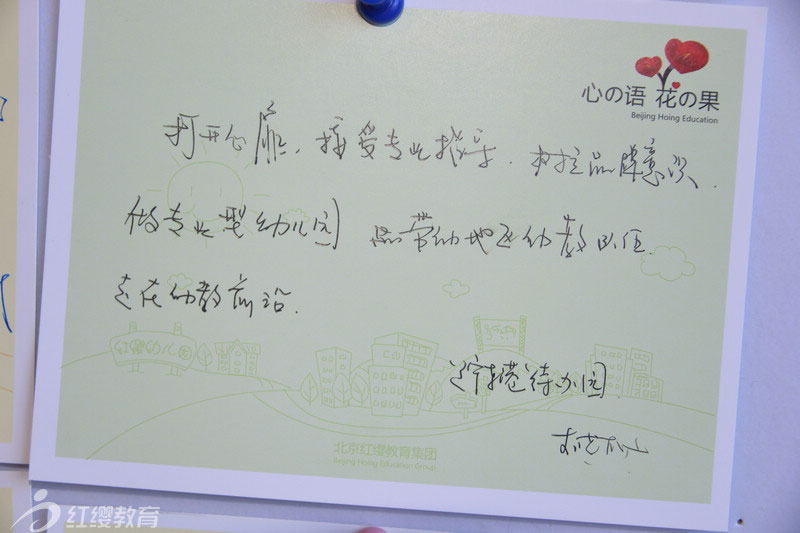 心の语 花の果
Beijing Hoing Education
打开心扉，接受专业指导，树立品牌意识，
做专业型幼儿园 带动地区幼教队伍
走在幼教前沿.
红缨幼儿园
待办园
北京红缨教育集团
Beijing Hoing Education Group
红缨教育